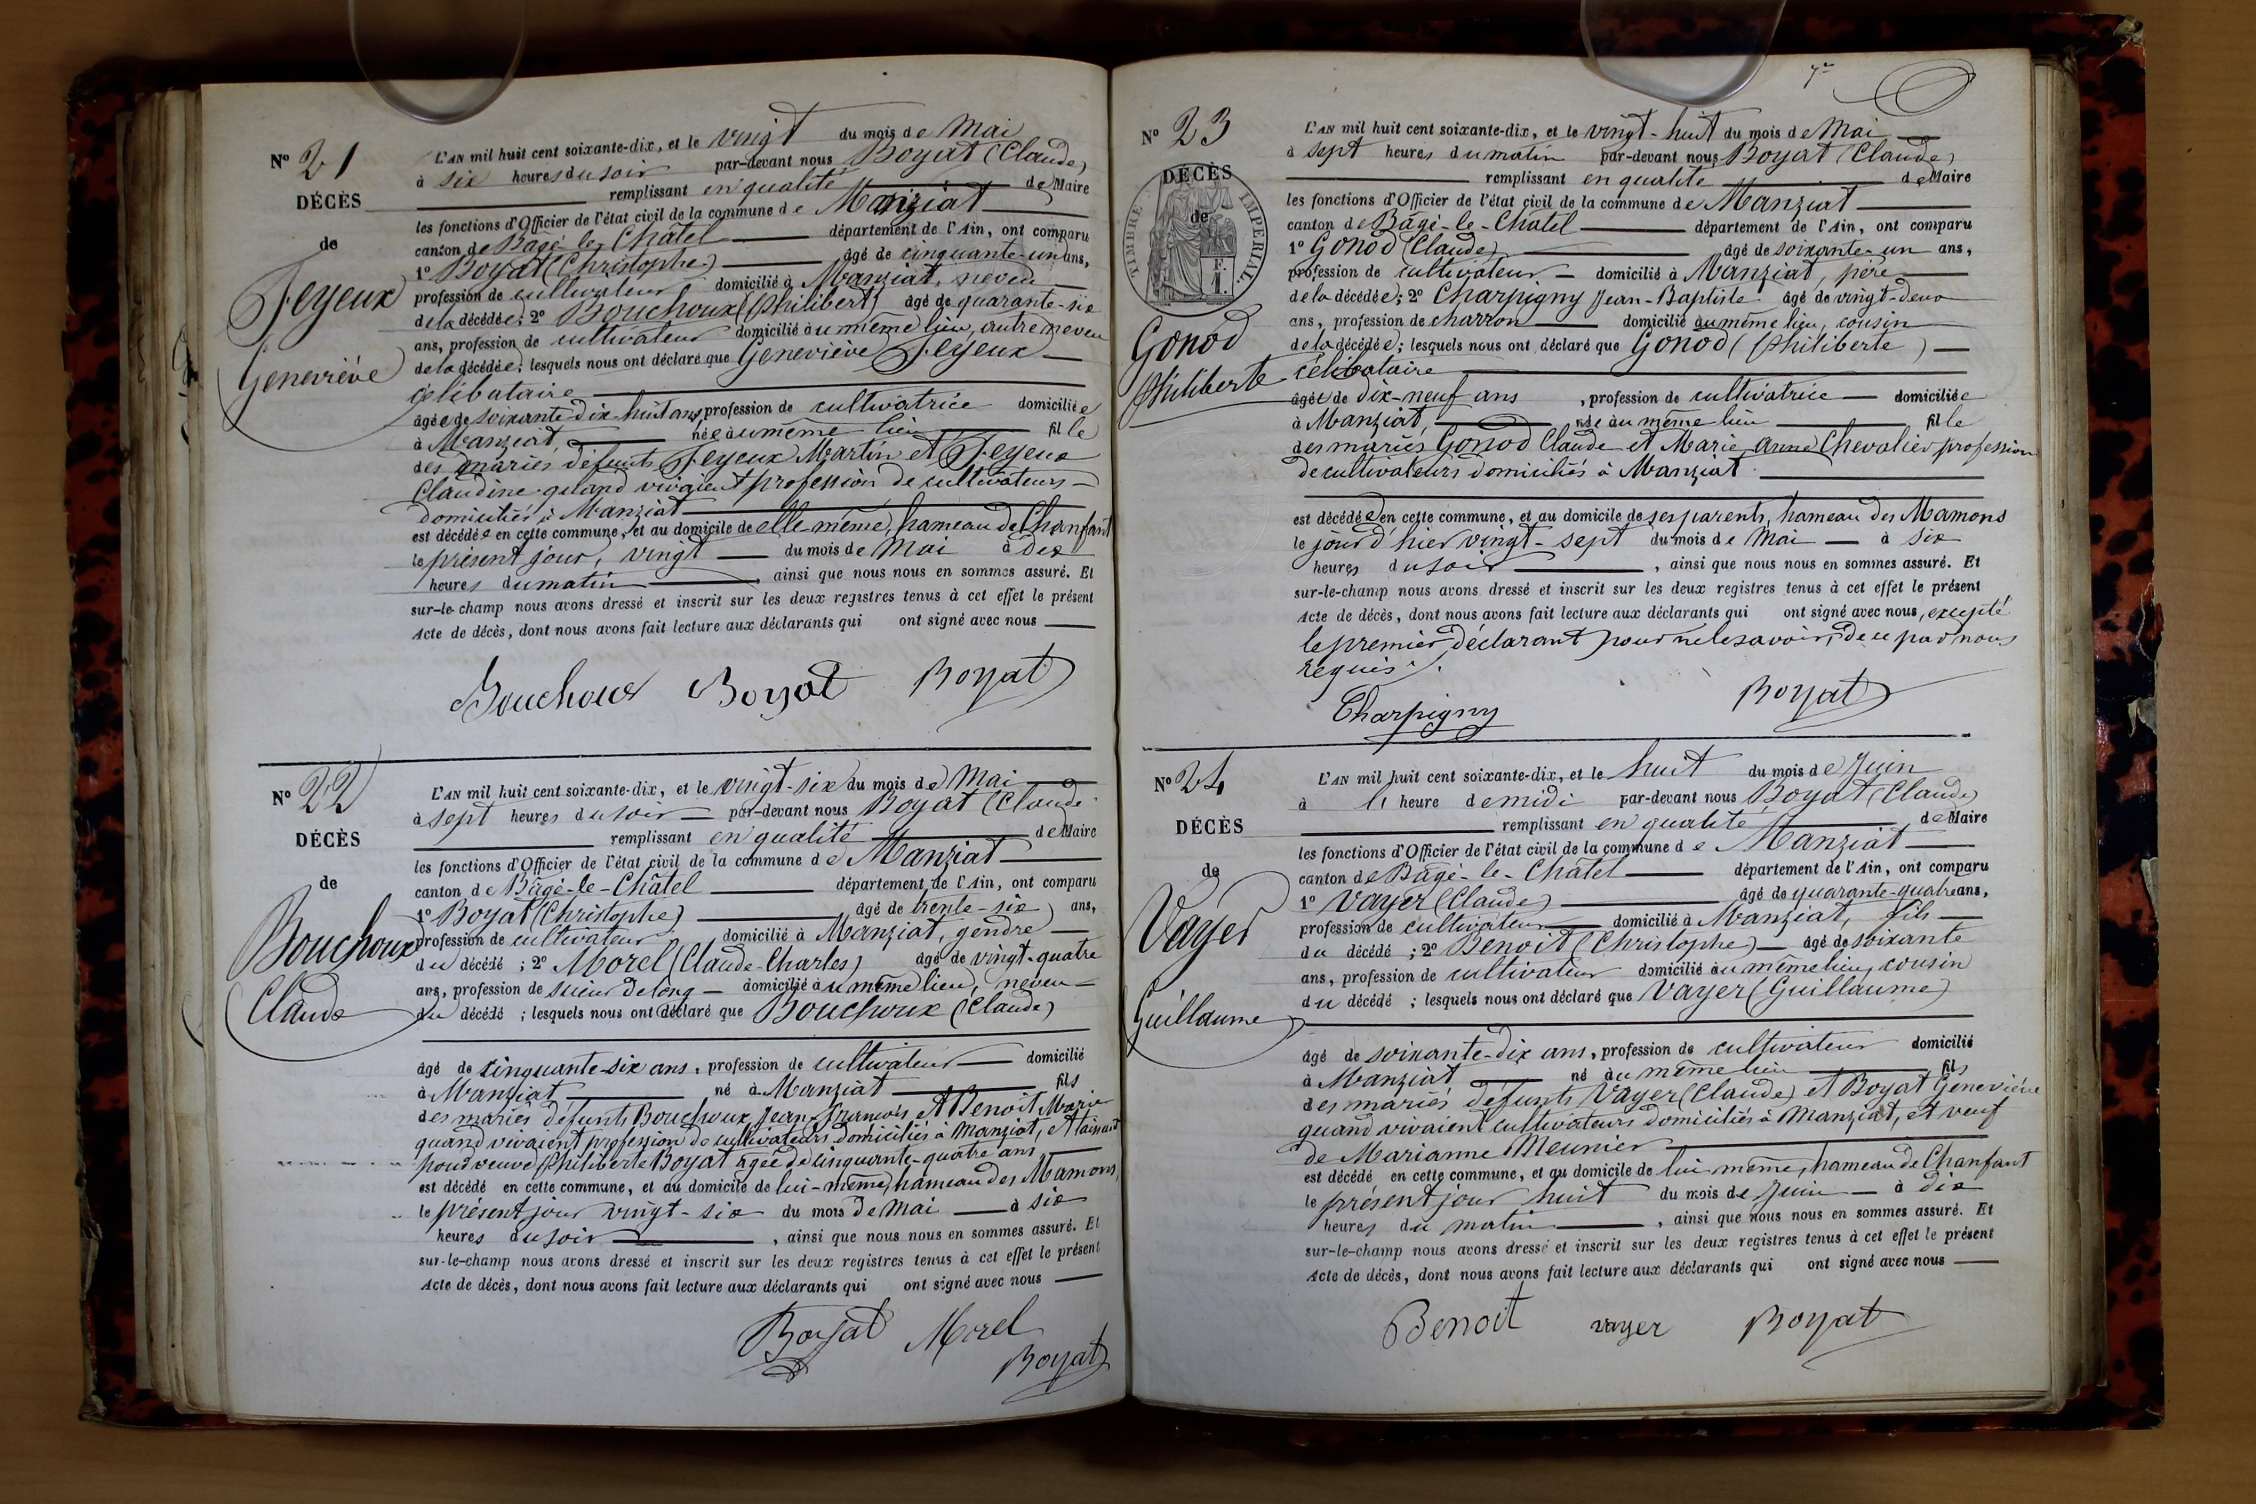 N° 21
DÉCÈS
de
Feyeux
Geneviève
L'AN mil huit cent soixante-dix, et le vingt du mois de Mai
à six heures du soir par-devant nous Boyat (Claude)
remplissant en qualité de Maire
les fonctions d'Officier de l'état civil de la commune de Manziat
canton de Bâgé-le-Châtel département de l'Ain, ont comparu
1° Boyat (Christophe) âgé de cinquante-un ans,
profession de cultivateur domicilié à Manziat, neveu
de la décédée; 2° Bouchoux (Philibert) âgé de quarante-six
ans, profession de cultivateur domicilié au même lieu, autre neveu
de la décédée; lesquels nous ont déclaré que Geneviève Feyeux
célibataire
âgée de soixante dix-huit ans, profession de cultivatrice domiciliée
à Manziat, née au même lieu fille
des mariés défunts Feyeux Martin et Feyeux
Claudine quand vivaient profession de cultivateurs
domiciliés à Manziat
est décédée en cette commune, et au domicile de elle-même, hameau de Chanfant
le présent jour, vingt du mois de Mai à dix
heures du matin, ainsi que nous nous en sommes assuré. Et
sur-le-champ nous avons dressé et inscrit sur les deux registres tenus à cet effet le présent
Acte de décès, dont nous avons fait lecture aux déclarants qui ont signé avec nous
Bouchoux Boyat Boyat
N° 22
DÉCÈS
de
Bouchoux
Claude
L'AN mil huit cent soixante-dix, et le vingt-six du mois de Mai
à sept heures du soir par-devant nous Boyat (Claude)
remplissant en qualité de Maire
les fonctions d'Officier de l'état civil de la commune de Manziat
canton de Bâgé-le-Châtel département de l'Ain, ont comparu
1° Boyat (Christophe) âgé de trente-six ans,
profession de cultivateur domicilié à Manziat, gendre
du décédé ; 2° Morel (Claude-Charles) âgé de vingt-quatre
ans, profession de scieur de long domicilié au même lieu, neveu
du décédé ; lesquels nous ont déclaré que Bouchoux (Claude)
âgé de cinquante-six ans, profession de cultivateur domicilié
à Manziat né à Manziat fils
des mariés défunts Bouchoux Jean-François et Benoit Marie
quand vivaient profession de cultivateurs domiciliés à Manziat, et laissant
pour veuve Philiberte Boyat âgée de cinquante-quatre ans
est décédé en cette commune, et au domicile de lui-même, hameau des Mamons,
le présent jour vingt-six du mois de Mai à six
heures du soir, ainsi que nous nous en sommes assuré. Et
sur-le-champ nous avons dressé et inscrit sur les deux registres tenus à cet effet le présent
Acte de décès, dont nous avons fait lecture aux déclarants qui ont signé avec nous
Boyat Morel
Boyat
N° 23
DÉCÈS
de
TIMBRE IMPÉRIAL
Gonod
Philiberte
L'AN mil huit cent soixante-dix, et le vingt-huit du mois de Mai
à sept heures du matin par-devant nous Boyat (Claude)
remplissant en qualité de Maire
les fonctions d'Officier de l'état civil de la commune de Manziat
canton de Bâgé-le-Châtel département de l'Ain, ont comparu
1° Gonod (Claude) âgé de soixante-un ans,
profession de cultivateur domicilié à Manziat, père
de la décédée; 2° Charpigny Jean-Baptiste âgé de vingt-deux
ans, profession de charron domicilié au même lieu, cousin
de la décédée; lesquels nous ont déclaré que Gonod (Philiberte)
célibataire
âgée de dix-neuf ans, profession de cultivatrice domiciliée
à Manziat, née au même lieu fille
des mariés Gonod Claude et Marie Anne Chevalier profession
de cultivateurs domiciliés à Manziat.
est décédée en cette commune, et au domicile de ses parents, hameau des Mamons
le jour d'hier vingt-sept du mois de Mai à six
heures du soir, ainsi que nous nous en sommes assuré. Et
sur-le-champ nous avons dressé et inscrit sur les deux registres tenus à cet effet le présent
Acte de décès, dont nous avons fait lecture aux déclarants qui ont signé avec nous, excepté
le premier déclarant pour ne le savoir, de ce par nous
requis.
Charpigny Boyat
N° 24
DÉCÈS
de
Vayer
Guillaume
L'AN mil huit cent soixante-dix, et le huit du mois de Juin
à heure de midi par-devant nous Boyat (Claude)
remplissant en qualité de Maire
les fonctions d'Officier de l'état civil de la commune de Manziat
canton de Bâgé-le-Châtel département de l'Ain, ont comparu
1° Vayer (Claude) âgé de quarante-quatre ans,
profession de cultivateur domicilié à Manziat, fils
du décédé ; 2° Benoit (Christophe) âgé de soixante
ans, profession de cultivateur domicilié au même lieu, cousin
du décédé ; lesquels nous ont déclaré que Vayer (Guillaume)
âgé de soixante-dix ans, profession de cultivateur domicilié
à Manziat, né au même lieu, fils
des mariés défunts Vayer (Claude) et Boyat Geneviève
quand vivaient cultivateurs domiciliés à Manziat, et veuf
de Marianne Meunier
est décédé en cette commune, et au domicile de lui-même, hameau de Chanfant
le présent jour huit du mois de Juin à dix
heures du matin, ainsi que nous nous en sommes assuré. Et
sur-le-champ nous avons dressé et inscrit sur les deux registres tenus à cet effet le présent
Acte de décès, dont nous avons fait lecture aux déclarants qui ont signé avec nous
Benoit vayer Boyat